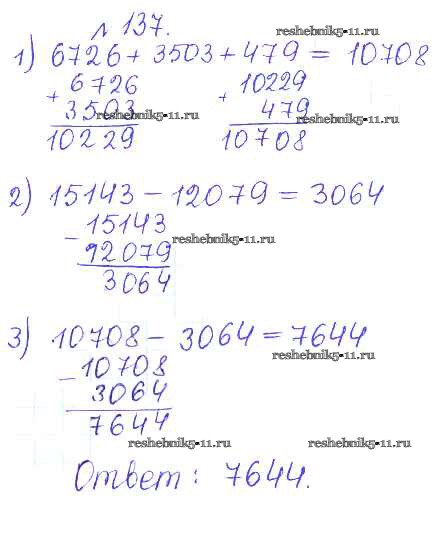 № 137.
reshebnik5-11.ru
1) 6726 + 3503 + 479 = 10708
+ 6726
3503
10229
reshebnik5-11.ru
+ 10229
479
10708
reshebnik5-11.ru
2) 15143 - 12079 = 3064
- 15143
12079
3064
reshebnik5-11.ru
3) 10708 - 3064 = 7644
reshebnik5-11.ru
- 10708
3064
7644
reshebnik5-11.ru
reshebnik5-11.ru
Ответ: 7644.